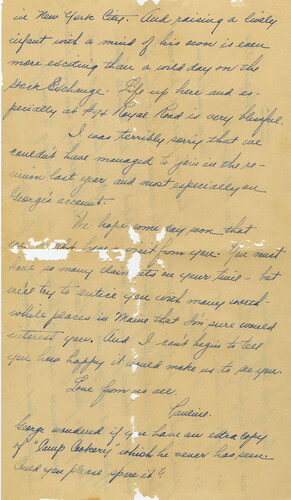 in New York City. And raising a lively
infant with a mind of his own is even
more exciting than a wild day on the
Stock Exchange. Life up here and es-
pecially at #74 Royal Road is very blissful.
I was terribly sorry that we
couldn't have managed to join in the re-
union last year, and most especially on
George's account.
We hope some day soon that
visit from you. You must
have so many claim its on your time - but
we'll try to entice you with many worth-
while places in Maine that I'm sure would
interest you. And I can't begin to tell
you how happy it would make us to see you.
Love from us all.
Pauline.
George wondered if you have an extra copy
of "Camp Cookery" which he never has seen.
Could you please spare it?